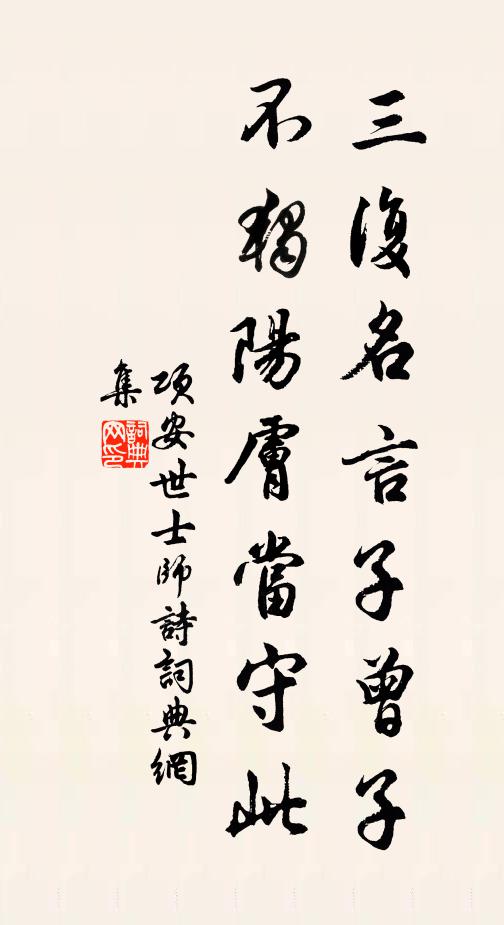 三復名言子曾子
不獨陽膚當守此
項安世士師詩詞典網
集
詞典
网印